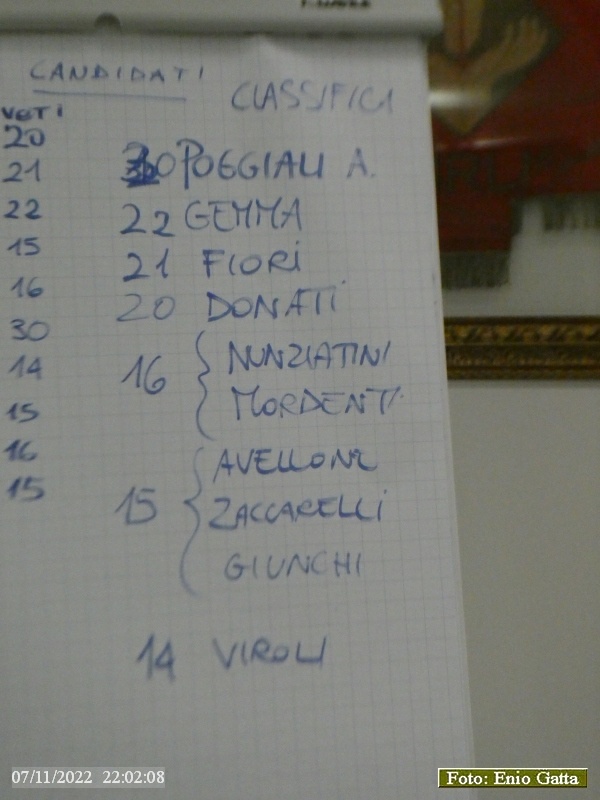 CANDIDATI
CLASSIFICI
VOTI
20
21
22
15
16
30
14
15
16
15
30 POGGIALI A.
22 GEMMA
21 FIORI
20 DONATI
16 { NUNZIATINI
MORDENTI
15 { AVELLONE
ZACCARELLI
GIUNCHI
14 VIROLI
07/11/2022 22:02:08
Foto: Enio Gatta